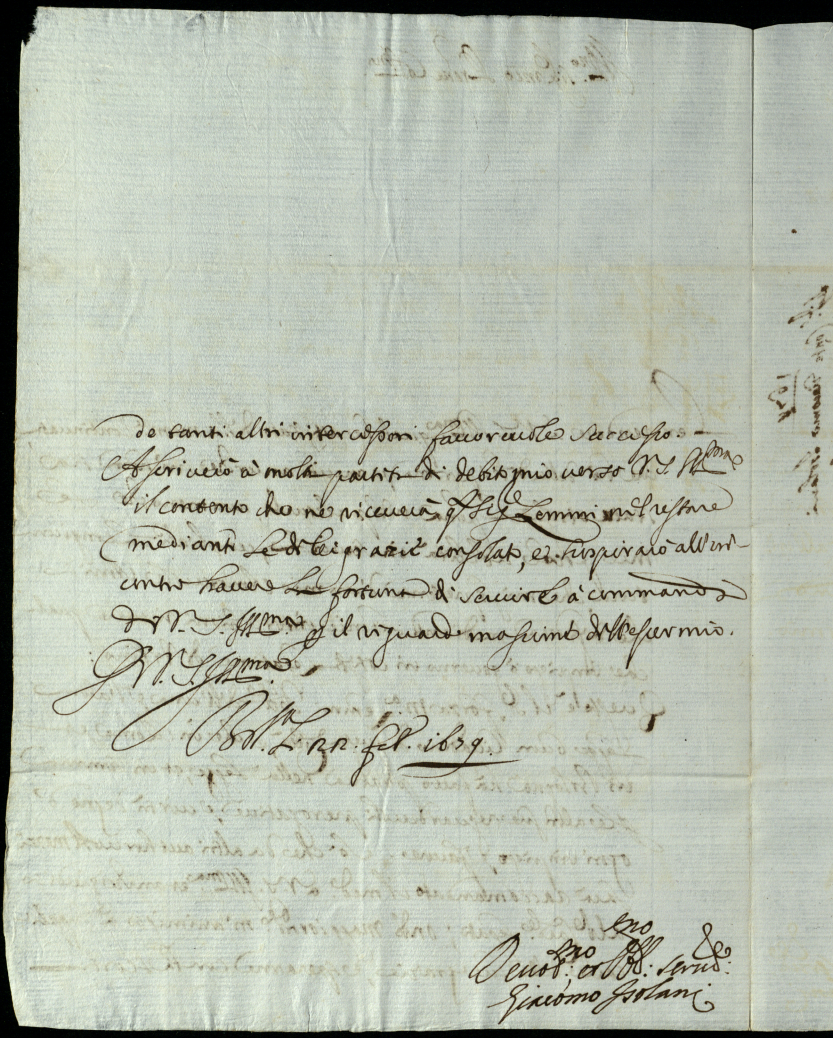 de tanti altri intercessori favorevole successo.
Ascriverò à molte partite di debito mio verso V. S. Ill.ma
il contento che ne riceverà q.to Sig.re Zemmi nel restare
mediante le di lei grazie consolato, et sospirarò all' in-
contro havere la fortuna di servirla à commandi
di V. S. Ill.ma p il riguardo massime dell'esser mio.
D V. S. Ill.ma
Bol.a Li 22. feb. 1659
Devot.mo et Obb.mo serv.re
Giacomo Isolani